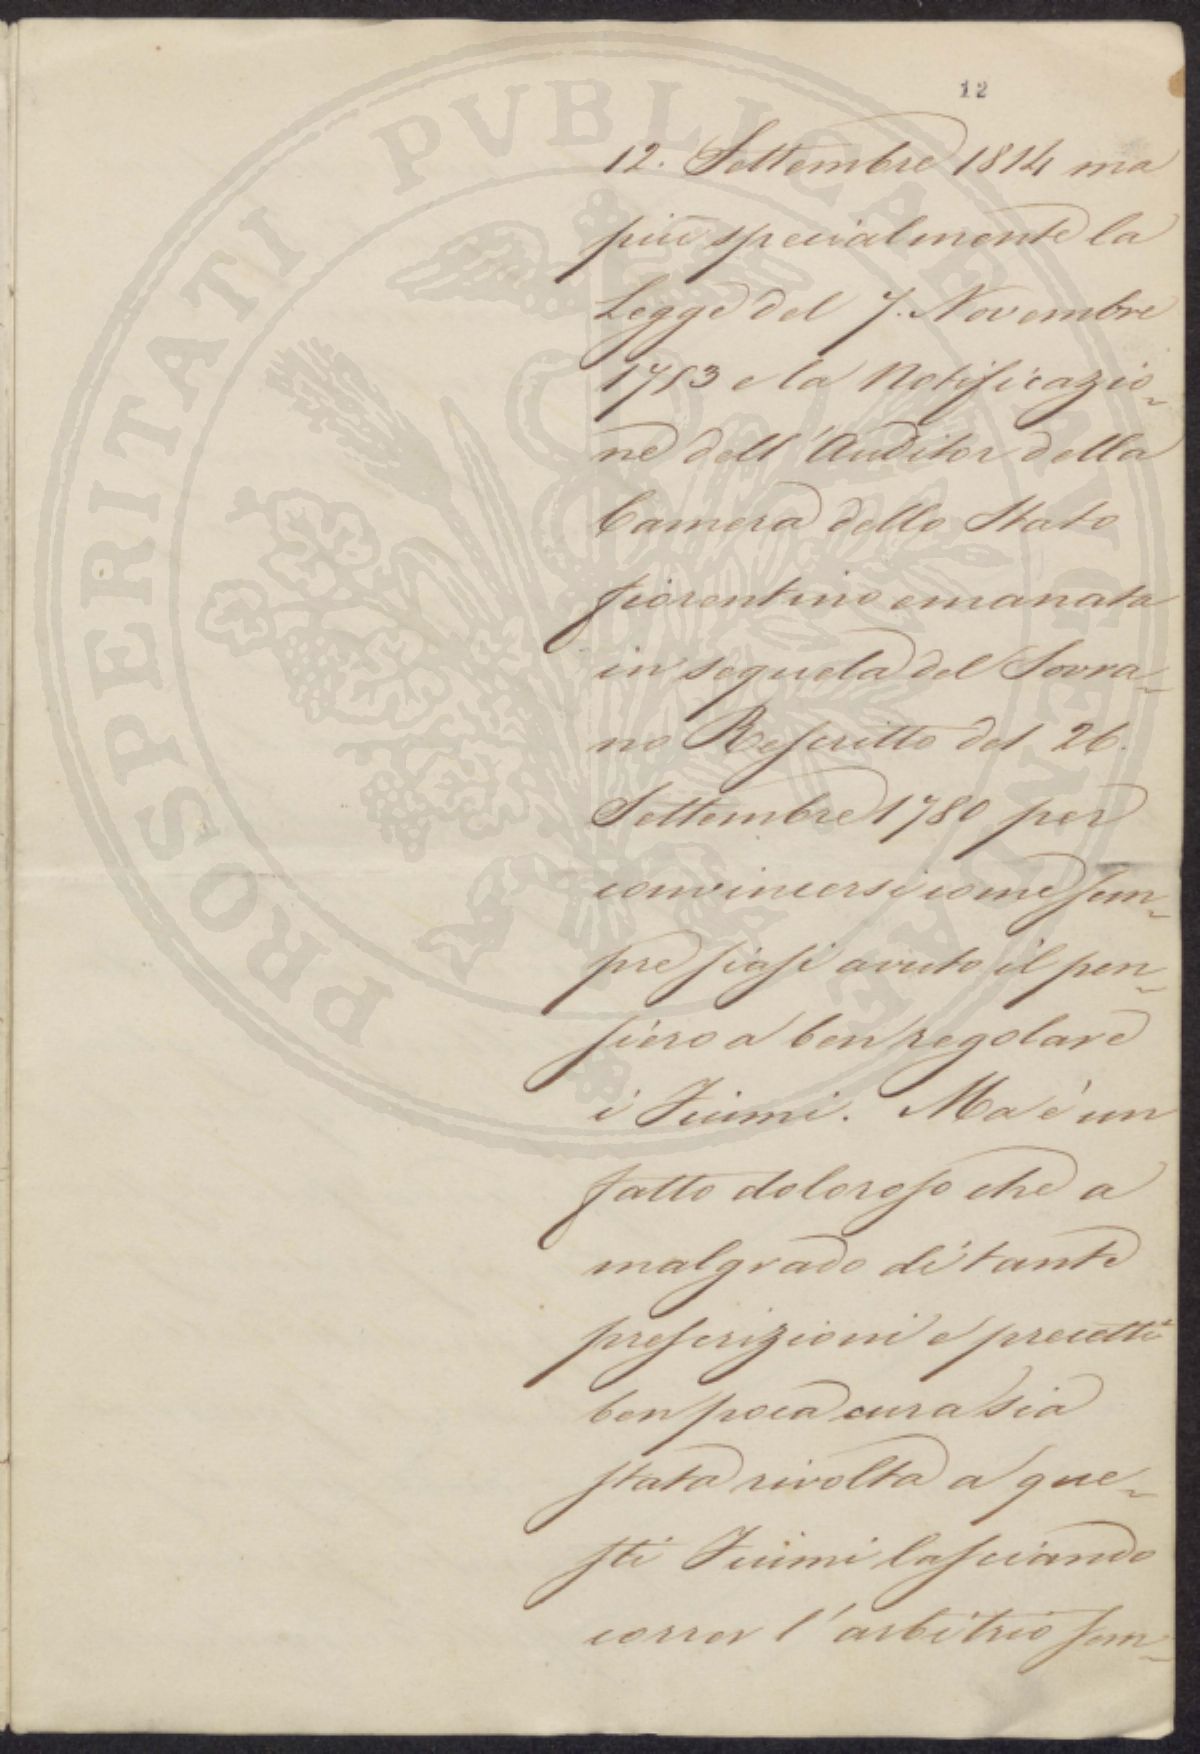 12
12. Settembre 1814 ma
più specialmente la
Legge del 7. Novembre
1753 e la Notificazio-
ne dell'Auditor della
Camera dello Stato
fiorentino emanata
in sequela del Sovra-
no Rescritto del 26.
Settembre 1780 per
convincersi come sem-
pre siasi avuto il pen-
siero a ben regolare
i Fiumi. Ma è un
fatto doloroso che a
malgrado di tante
prescrizioni e precetti
ben poca cura sia
stata rivolta a que-
sti Fiumi lasciando
correr l'arbitrio sem-
PROSPERITATI PVBLICAE AVGENDAE